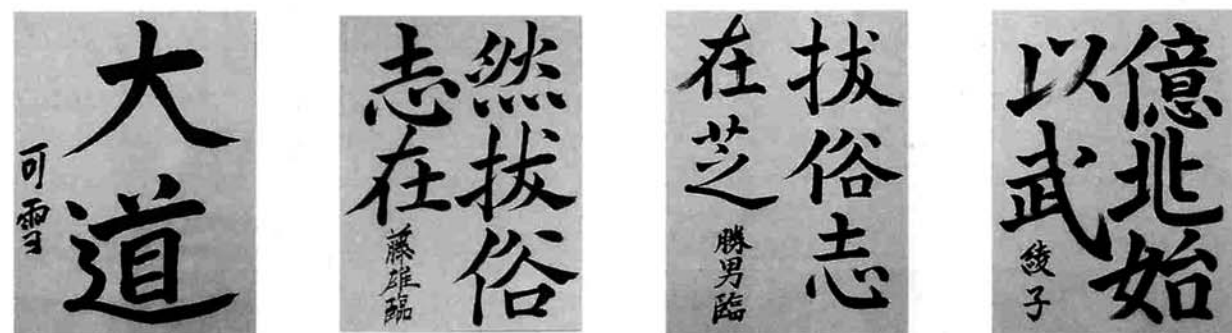 大道
可雪
然拔俗
志在
藤雄臨
拔俗志
在芝
勝男臨
億兆始
以武
綾子